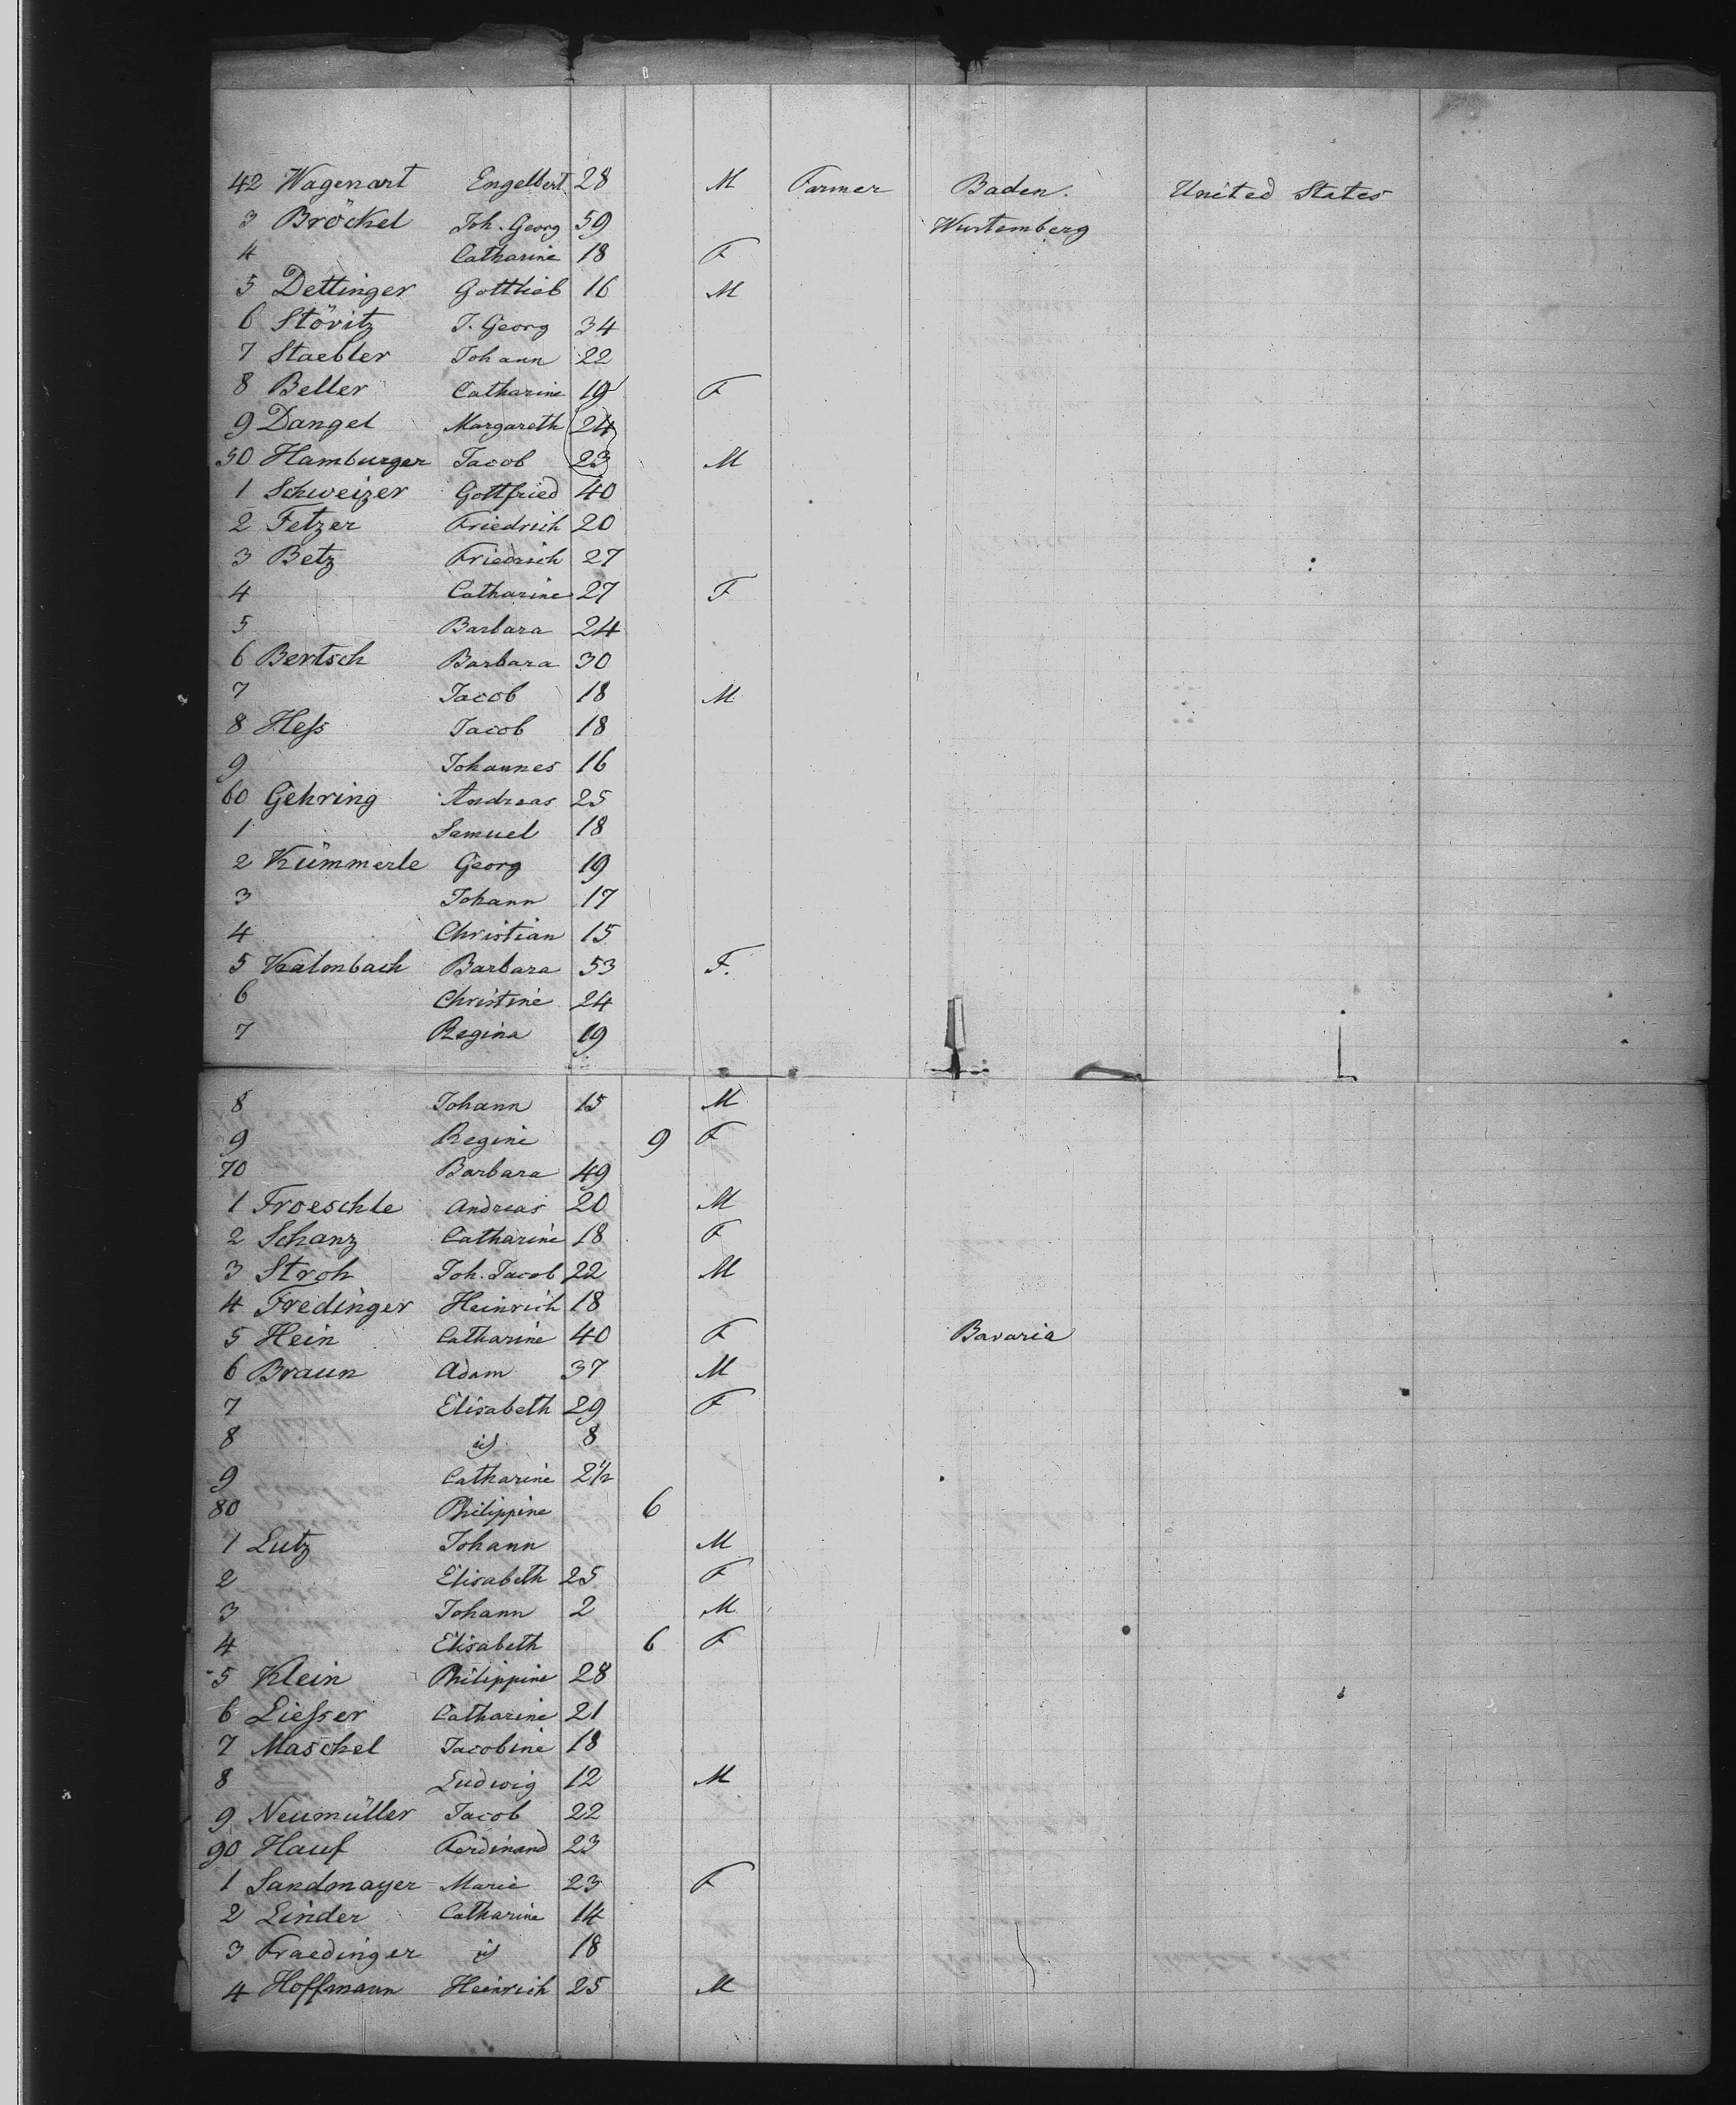 42 Wagenart Engelbert 28 M Farmer Baden. United States
3 Bröckel Joh. Georg 59 Wurtemberg
4 Catharine 18 F
5 Dettinger Gottlieb 16 M
6 Störitz J. Georg 34
7 Staebler Johann 22
8 Beller Catharine 19 F
9 Dangel Margareth 24
50 Hamburger Jacob 23 M
1 Schweizer Gottfried 40
2 Fetzer Friedrich 20
3 Betz Friedrich 27
4 Catharine 27 F
5 Barbara 24
6 Bertsch Barbara 30
7 Jacob 18 M
8 Heſs Jacob 18
9 Johannes 16
60 Gehring Andreas 25
1 Samuel 18
2 Kümmerle Georg 19
3 Johann 17
4 Christian 15
5 Kalmbach Barbara 53 F.
6 Christine 24
7 Regina 19
8 Johann 15 M
9 Regine 9 F
70 Barbara 49
1 Froeschle Andreas 20 M
2 Schanz Catharine 18 F
3 Stroh Joh. Jacob 22 M
4 Fredinger Heinrich 18
5 Hein Catharine 40 F Bavaria
6 Braun Adam 37 M
7 Elisabeth 29 F
8 id 8
9 Catharine 2½
80 Philippine 6
1 Lutz Johann M
2 Elisabeth 25 F
3 Johann 2 M
4 Elisabeth 6 F
5 Klein Philippine 28
6 Lieſser Catharine 21
7 Maschel Jacobine 18
8 Ludwig 12 M
9 Neumüller Jacob 22
90 Hauf Ferdinand 23
1 Sandmayer Marie 23 F
2 Linder Catharine 14
3 Fraedinger id 18
4 Hoffmann Heinrich 25 M